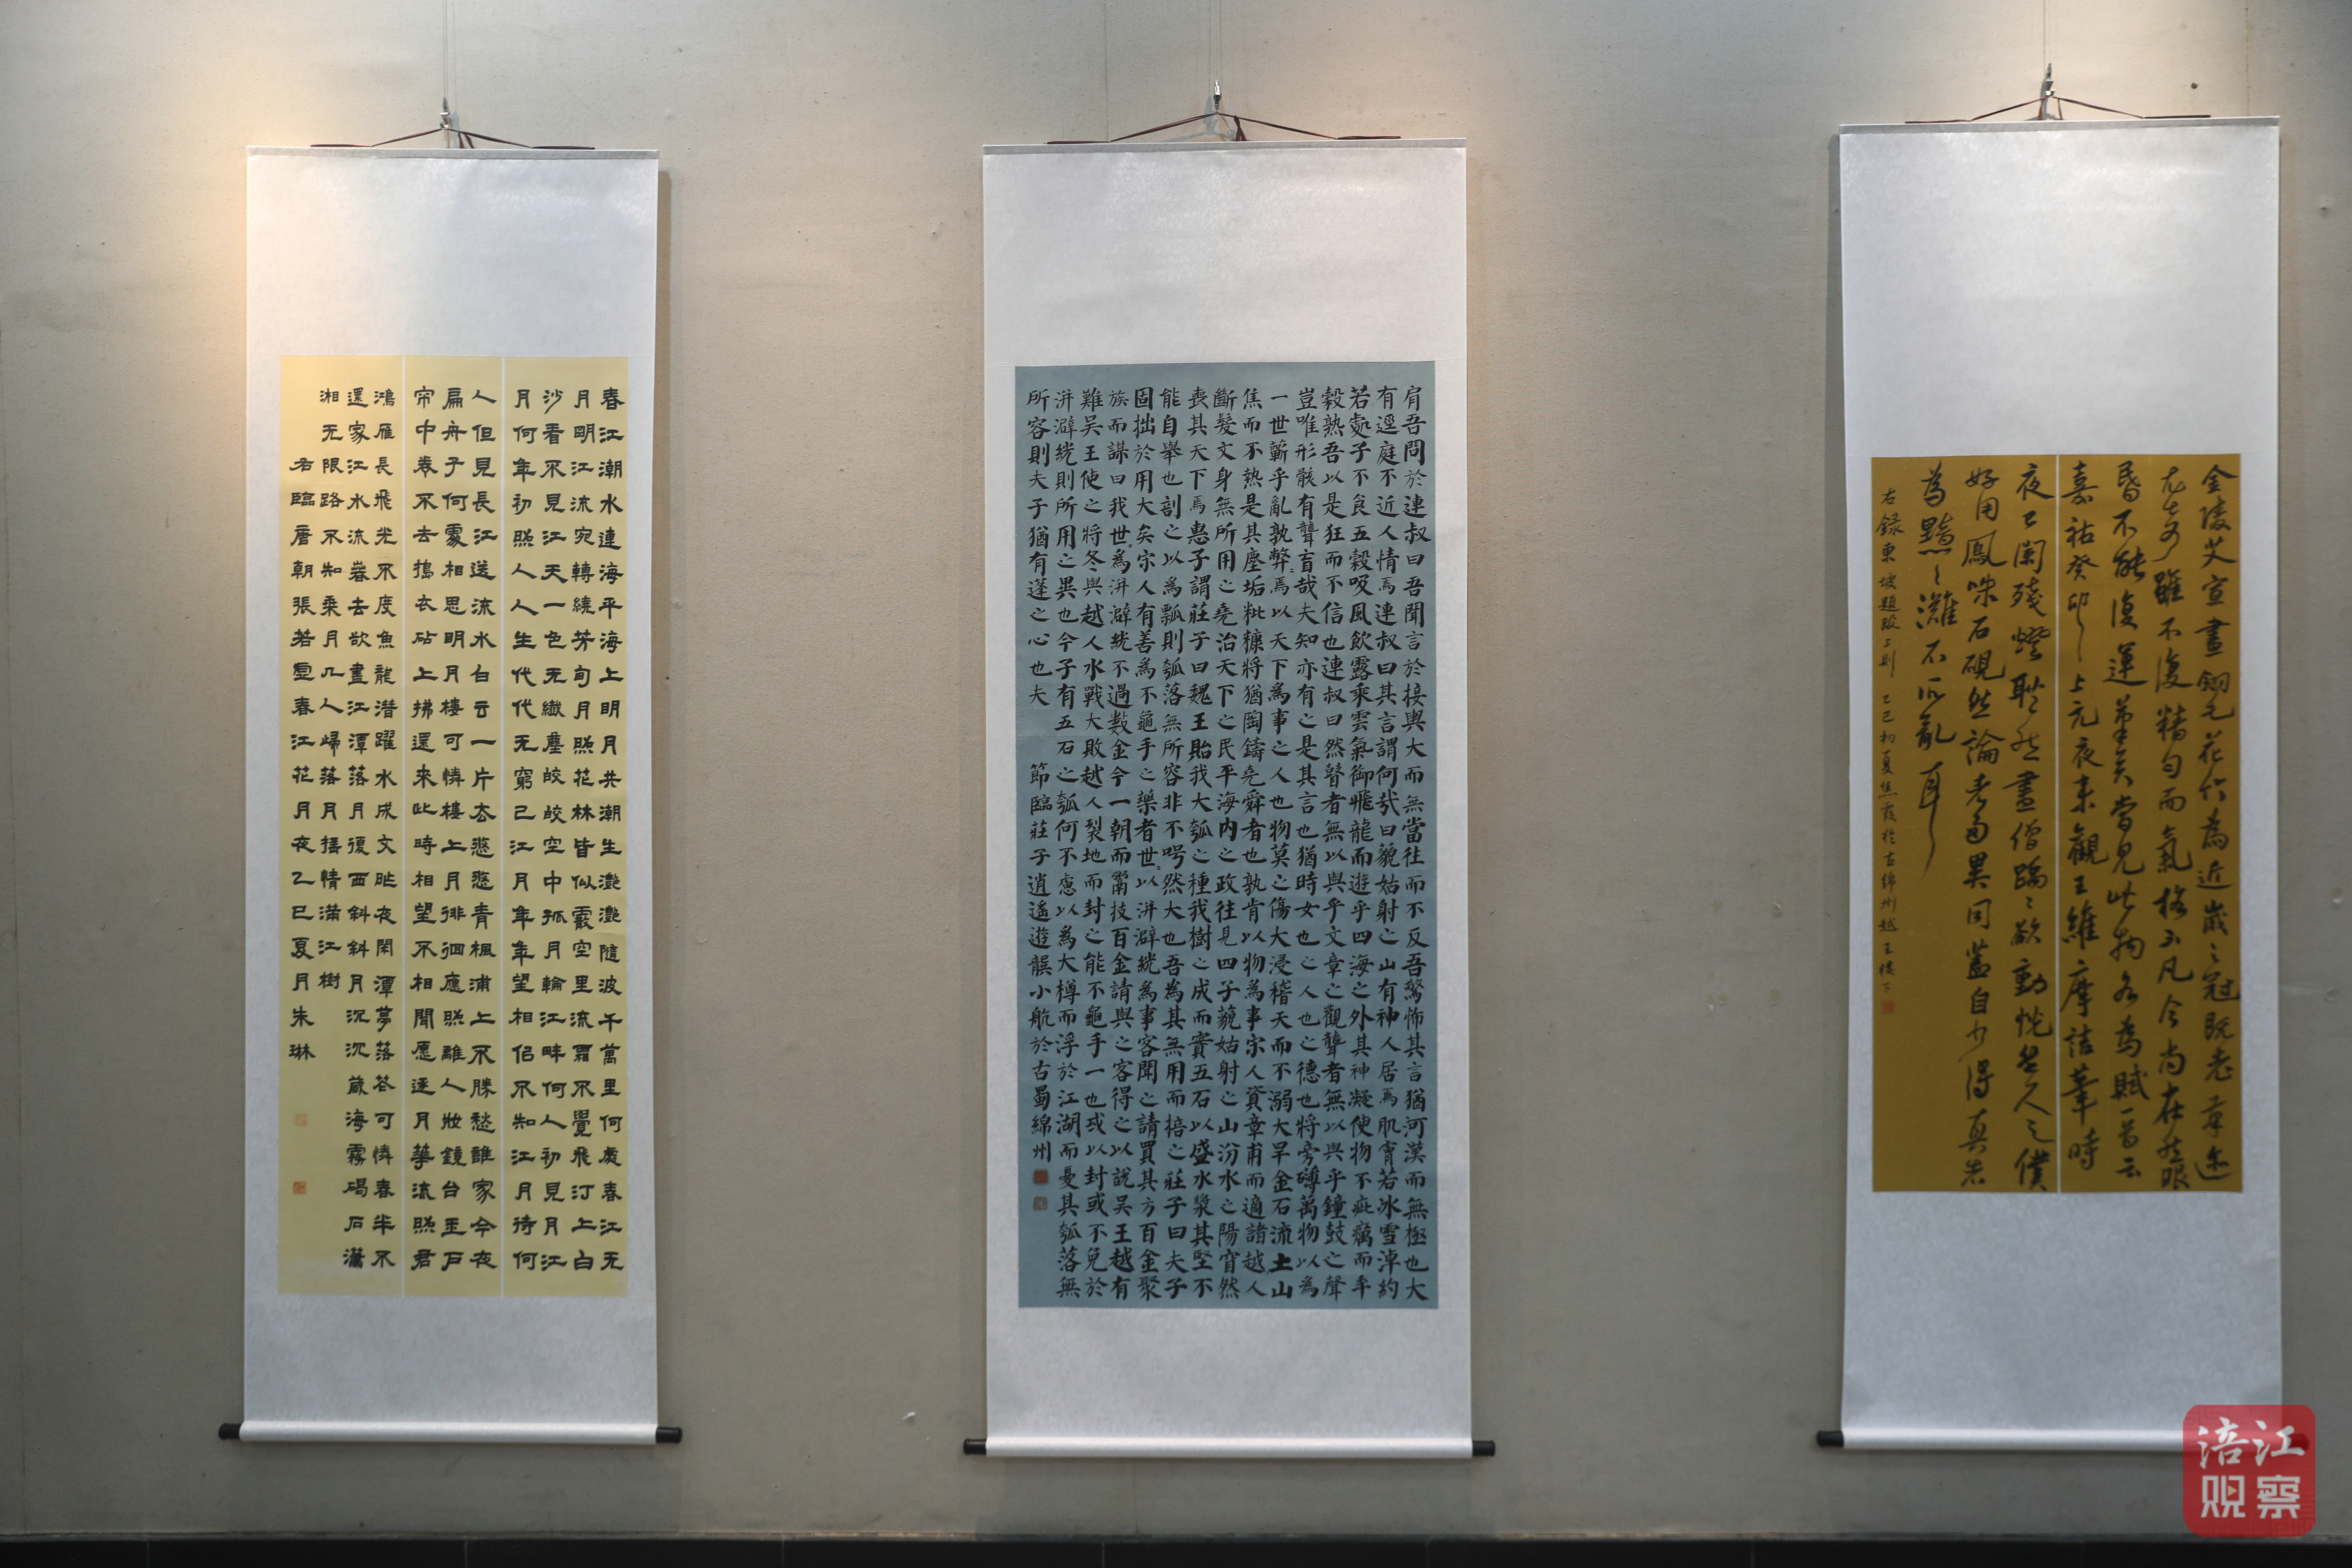 春江潮水連海平海上明月共潮生灧灧隨波千萬里何處春江无
月明江流宛轉繞芳甸月照花林皆似霰空里流霜不覺飛汀上白
沙看不見江天一色无纖塵皎皎空中孤月輪江畔何人初見月江
月何年初照人人生代代无窮已江月年年望相佀不知江月待何
人但見長江送流水白云一片去悠悠青楓浦上不勝愁誰家今夜
扁舟子何處相思明月樓可憐樓上月徘徊應照離人妝鏡台玉戶
帘中卷不去搗衣砧上拂還來此時相望不相聞愿逐月華流照君
鴻雁長飛光不度魚龍潜躍水成文昨夜閑潭夢落花可憐春半不
還家江水流春去欲盡江潭落月復西斜斜月沉沉藏海霧碣石瀟
湘无限路不知乘月几人歸落月摇情滿江樹
右臨唐朝張若虛春江花月夜乙巳夏月朱琳
肩吾問於連叔曰吾聞言於接輿大而無當往而不反吾驚怖其言猶河漢而無極也大
有逕庭不近人情焉連叔曰其言謂何哉曰藐姑射之山有神人居焉肌膚若冰雪淖約
若處子不食五穀吸風飲露乘雲氣御飛龍而遊乎四海之外其神凝使物不疵癘而年
穀熟吾以是狂而不信也連叔曰然瞽者無以與乎文章之觀聾者無以與乎鐘鼓之聲
豈唯形骸有聾盲哉夫知亦有之是其言也猶時女也之人也之德也將旁礡萬物以為
一世蘄乎亂孰弊焉以天下為事之人也物莫之傷大浸稽天而不溺大旱金石流土山
焦而不熱是其塵垢粃糠將猶陶鑄堯舜者也孰肯以物為事宋人資章甫而適諸越人
斷髮文身無所用之堯治天下之民平海内之政往見四子藐姑射之山汾水之陽窅然
喪其天下焉惠子謂莊子曰魏王貽我大瓠之種我樹之成而實五石以盛水漿其堅不
能自舉也剖之以為瓢則瓠落無所容非不呺然大也吾為其無用而掊之莊子曰夫子
固拙於用大矣宋人有善為不龜手之藥者世以洴澼絖為事客聞之請買其方百金聚
族而謀曰我世為洴澼絖不過數金今一朝而鬻技百金請與之客得之以說吳王越有
難吳王使之將冬與越人水戰大敗越人裂地而封之能不龜手一也或以封或不免於
洴澼絖則所用之異也今子有五石之瓠何不慮以為大樽而浮於江湖而憂其瓠落無
所容則夫子猶有蓬之心也夫 節臨莊子逍遥遊龔小航於古蜀綿州
金陵艾宣畫翎毛花竹為近歲之冠既老筆迹
尤奇雖不復精勻而氣格不凡今尚在然眼
昏不能復運筆矣嘗見此物各為賦一首云
嘉祐癸卯上元夜來觀王維摩詰筆時
夜已闌殘燈耿然畫僧踽踽欲動恍然久之僕
好用鳳咮石硯然論者多異同蓋自少得真者
為黯黯灘石所亂耳
右録東坡題跋三則 乙巳初夏焦霞於古綿州越王樓下
涪江
观察